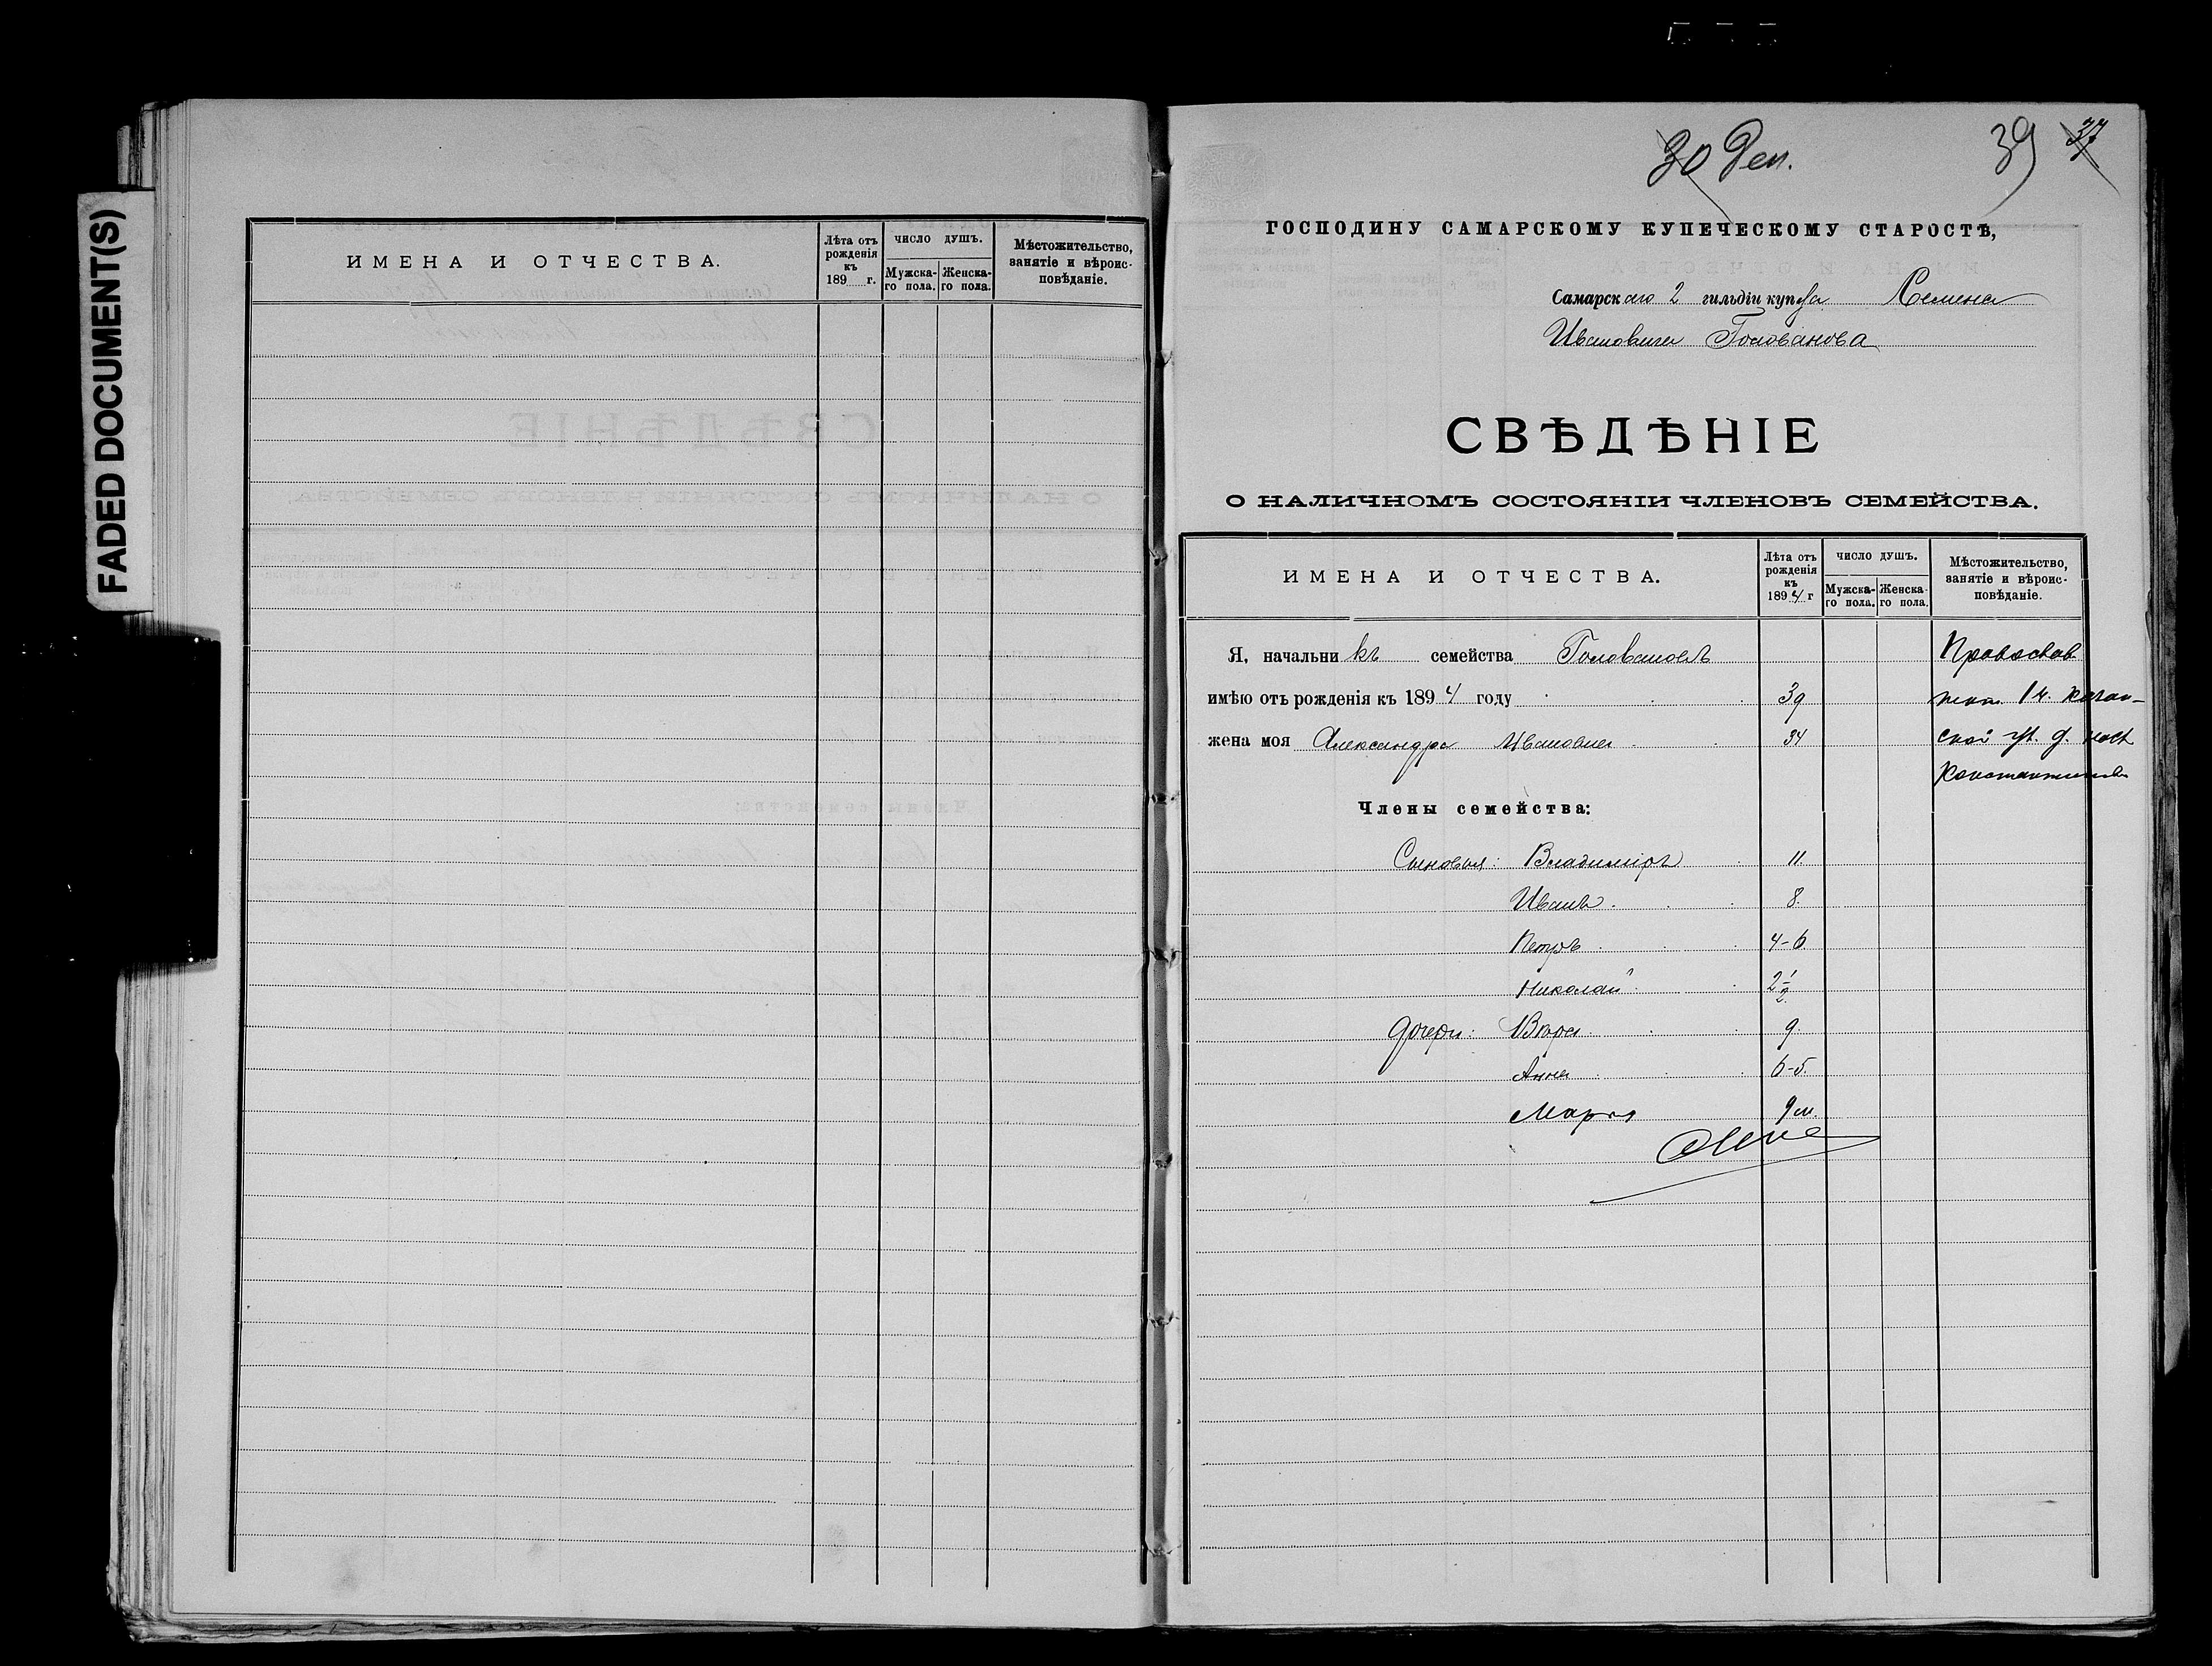 FADED DOCUMENT(S)
ИМЕНА И ОТЧЕСТВА.
Лѣта отъ рожденія къ 189 г.
ЧИСЛО ДУШЪ.
Мужска-го пола.
Женска-го пола.
Мѣстожительство, занятіе и вѣроис-повѣданіе.
30 Дек.
39 37
ГОСПОДИНУ САМАРСКОМУ КУПЕЧЕСКОМУ СТАРОСТѢ,
Самарскаго 2 гильдіи купца Семена
Ивановича Голованова
СВѢДѢНІЕ
О НАЛИЧНОМЪ СОСТОЯНІИ ЧЛЕНОВЪ СЕМЕЙСТВА.
ИМЕНА И ОТЧЕСТВА.
Лѣта отъ рожденія къ 1894 г
ЧИСЛО ДУШЪ.
Мужска-го пола.
Женска-го пола.
Мѣстожительство, занятіе и вѣроис-повѣданіе.
Я, начальникъ семейства Головановъ Православ
имѣю отъ рожденія къ 1894 году 39 1 ч. Казан-
жена моя Александра Ивановна 34 ской ул. д.
Константинов
Члены семейства:
Сыновья: Владиміръ 11
Иванъ 8
Петръ 4-6
Николай 2 1/2
Дочери: Вѣра 9
Анна 6-5
Марія 9 м.